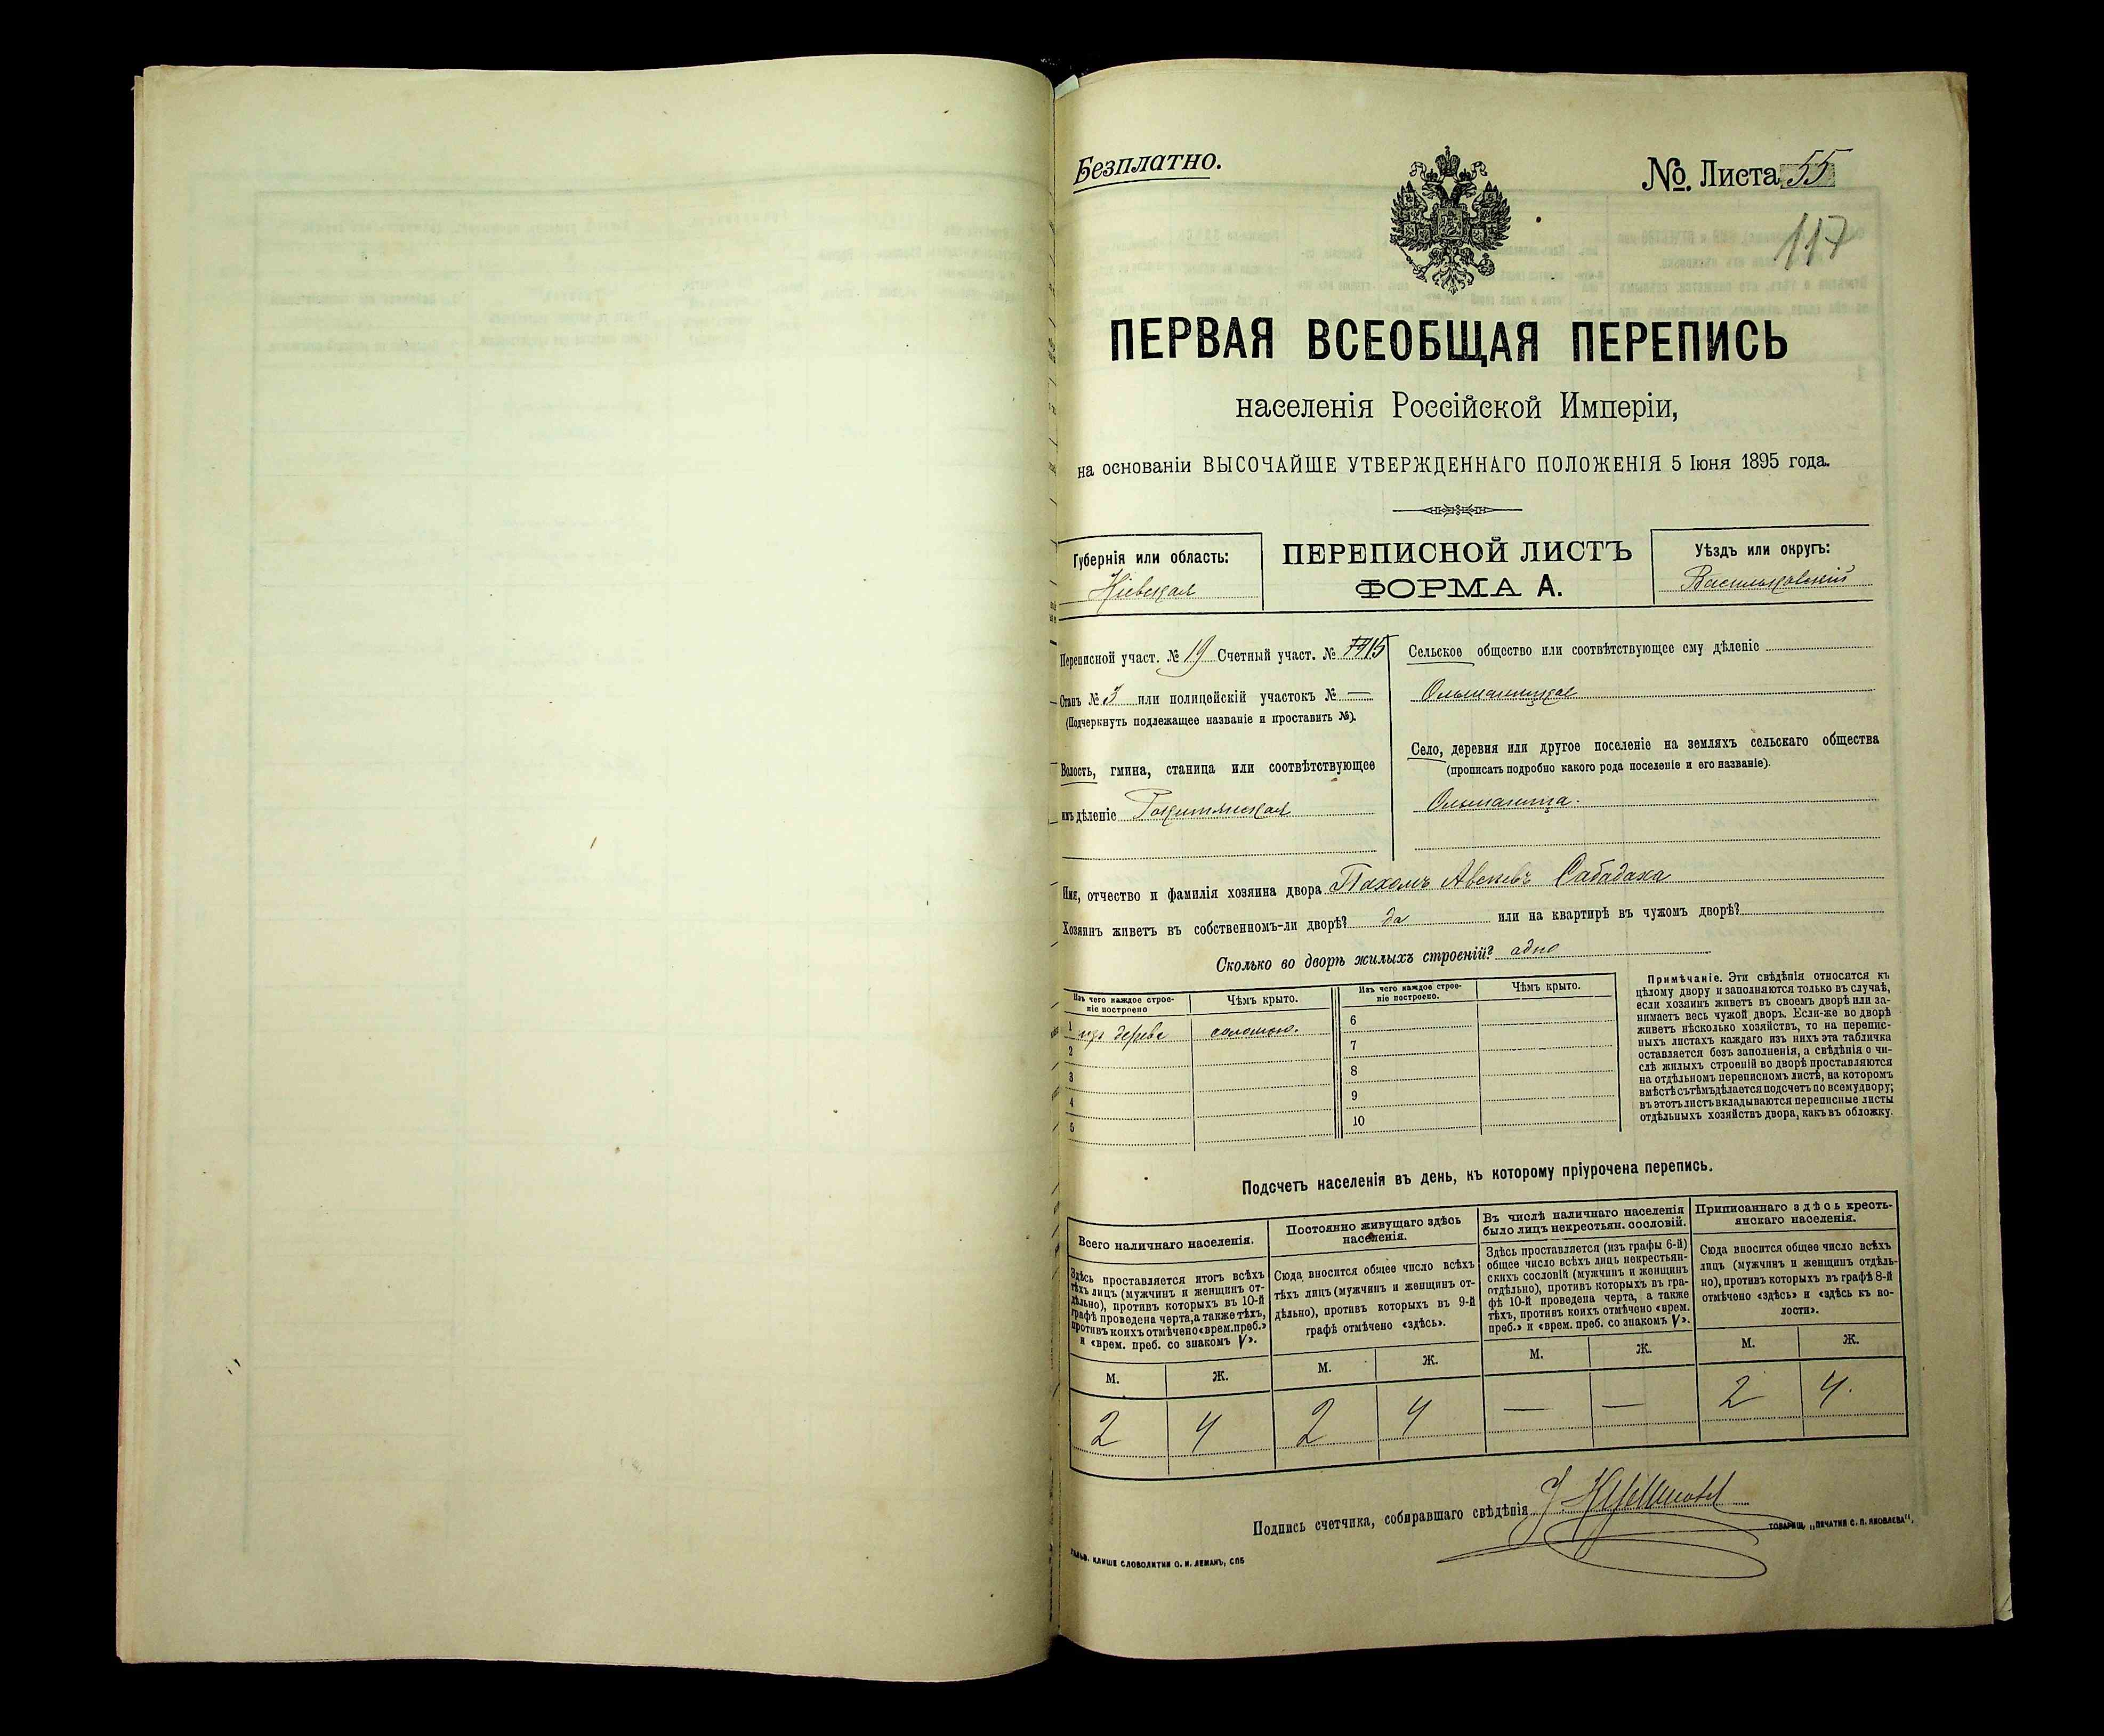 Безплатно.
№. Листа 55
117
ПЕРВАЯ ВСЕОБЩАЯ ПЕРЕПИСЬ
населенія Россійской Имперіи,
на основаніи ВЫСОЧАЙШЕ УТВЕРЖДЕННАГО ПОЛОЖЕНІЯ 5 Іюня 1895 года.
Губернія или область:
Кіевская
ПЕРЕПИСНОЙ ЛИСТЪ
ФОРМА А.
Уѣздъ или округъ:
Васильковскій
Переписной участ. № 19 Счетный участ. № 15
Станъ № 3 или полицейскій участокъ № —
(Подчеркнуть подлежащее названіе и проставить №).
Волость, гмина, станица или соотвѣтствующее
имъ дѣленіе Рокитянская
Сельское общество или соотвѣтствующее ему дѣленіе
Ольшаницкое
Село, деревня или другое поселеніе на земляхъ сельскаго общества
(прописать подробно какого рода поселеніе и его названіе).
Ольшаница.
Имя, отчество и фамилія хозяина двора Пахомъ Сабадаха
Хозяинъ живетъ въ собственномъ-ли дворѣ? да или на квартирѣ въ чужомъ дворѣ?
Сколько во дворѣ жилыхъ строеній? одно
Изъ чего каждое строе-
ніе построено
Чѣмъ крыто.
1 изъ дерева соломою.
2
3
4
5
Изъ чего каждое строе-
ніе построено.
Чѣмъ крыто.
6
7
8
9
10
Примѣчаніе. Эти свѣдѣнія относятся къ
цѣлому двору и заполняются только въ случаѣ,
если хозяинъ живетъ въ своемъ дворѣ или за-
нимаетъ весь чужой дворъ. Если-же во дворѣ
живетъ нѣсколько хозяйствъ, то на перепис-
ныхъ листахъ каждаго изъ нихъ эта табличка
оставляется безъ заполненія, а свѣдѣнія о чи-
слѣ жилыхъ строеній во дворѣ проставляются
на отдѣльномъ переписномъ листѣ, на которомъ
вмѣстѣ съ тѣмъ дѣлается подсчетъ по всему двору;
въ этотъ листъ вкладываются переписные листы
отдѣльныхъ хозяйствъ двора, какъ въ обложку.
Подсчетъ населенія въ день, къ которому пріурочена перепись.
Всего наличнаго населенія.
Здѣсь проставляется итогъ всѣхъ
тѣхъ лицъ (мужчинъ и женщинъ от-
дѣльно), противъ которыхъ въ 10-й
графѣ проведена черта, а также тѣхъ,
противъ коихъ отмѣчено «врем. преб.»
и «врем. преб. со знакомъ V».
М. Ж.
2 4
Постоянно живущаго здѣсь
населенія.
Сюда вносится общее число всѣхъ
тѣхъ лицъ (мужчинъ и женщинъ от-
дѣльно), противъ которыхъ въ 9-й
графѣ отмѣчено «здѣсь».
М. Ж.
2 4
Въ числѣ наличнаго населенія
было лицъ некрестьян. сословій.
Здѣсь проставляется (изъ графы 6-й)
общее число всѣхъ лицъ некрестьян-
скихъ сословій (мужчинъ и женщинъ
отдѣльно), противъ которыхъ въ гра-
фѣ 10-й проведена черта, а также
тѣхъ, противъ коихъ отмѣчено «врем.
преб.» и «врем. преб. со знакомъ V».
М. Ж.
— —
Приписаннаго здѣсь кресть-
янскаго населенія.
Сюда вносится общее число всѣхъ
лицъ (мужчинъ и женщинъ отдѣль-
но), противъ которыхъ въ графѣ 8-й
отмѣчено «здѣсь» и «здѣсь къ во-
лости».
М. Ж.
2 4.
Подпись счетчика, собиравшаго свѣдѣнія
ТОВАРИЩ. „ПЕЧАТНИ С. П. ЯКОВЛЕВА“.
ГАЛЬВ. КЛИШЕ СЛОВОЛИТНИ О. И. ЛЕМАНЪ, СПБ